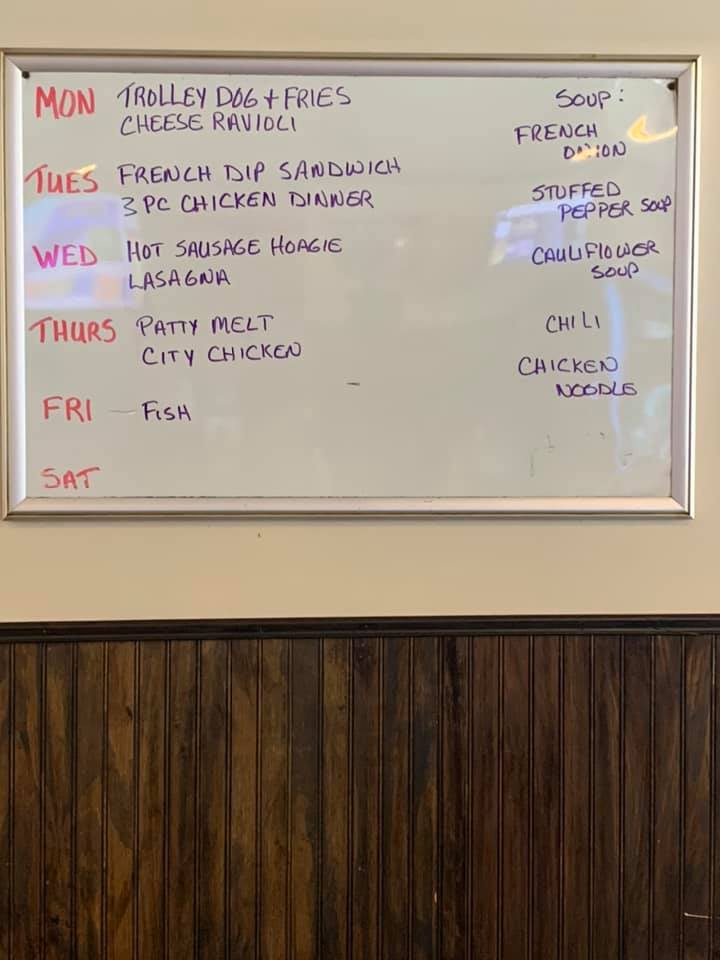 MON TROLLEY DOG + FRIES
CHEESE RAVIOLI
SOUP:
FRENCH
ONION
TUES FRENCH DIP SANDWICH
3 PC CHICKEN DINNER
STUFFED
PEPPER SOUP
WED HOT SAUSAGE HOAGIE
LASAGNA
CAULIFLOWER
SOUP
THURS PATTY MELT
CITY CHICKEN
CHILI
FRI – FISH
CHICKEN
NOODLE
SAT